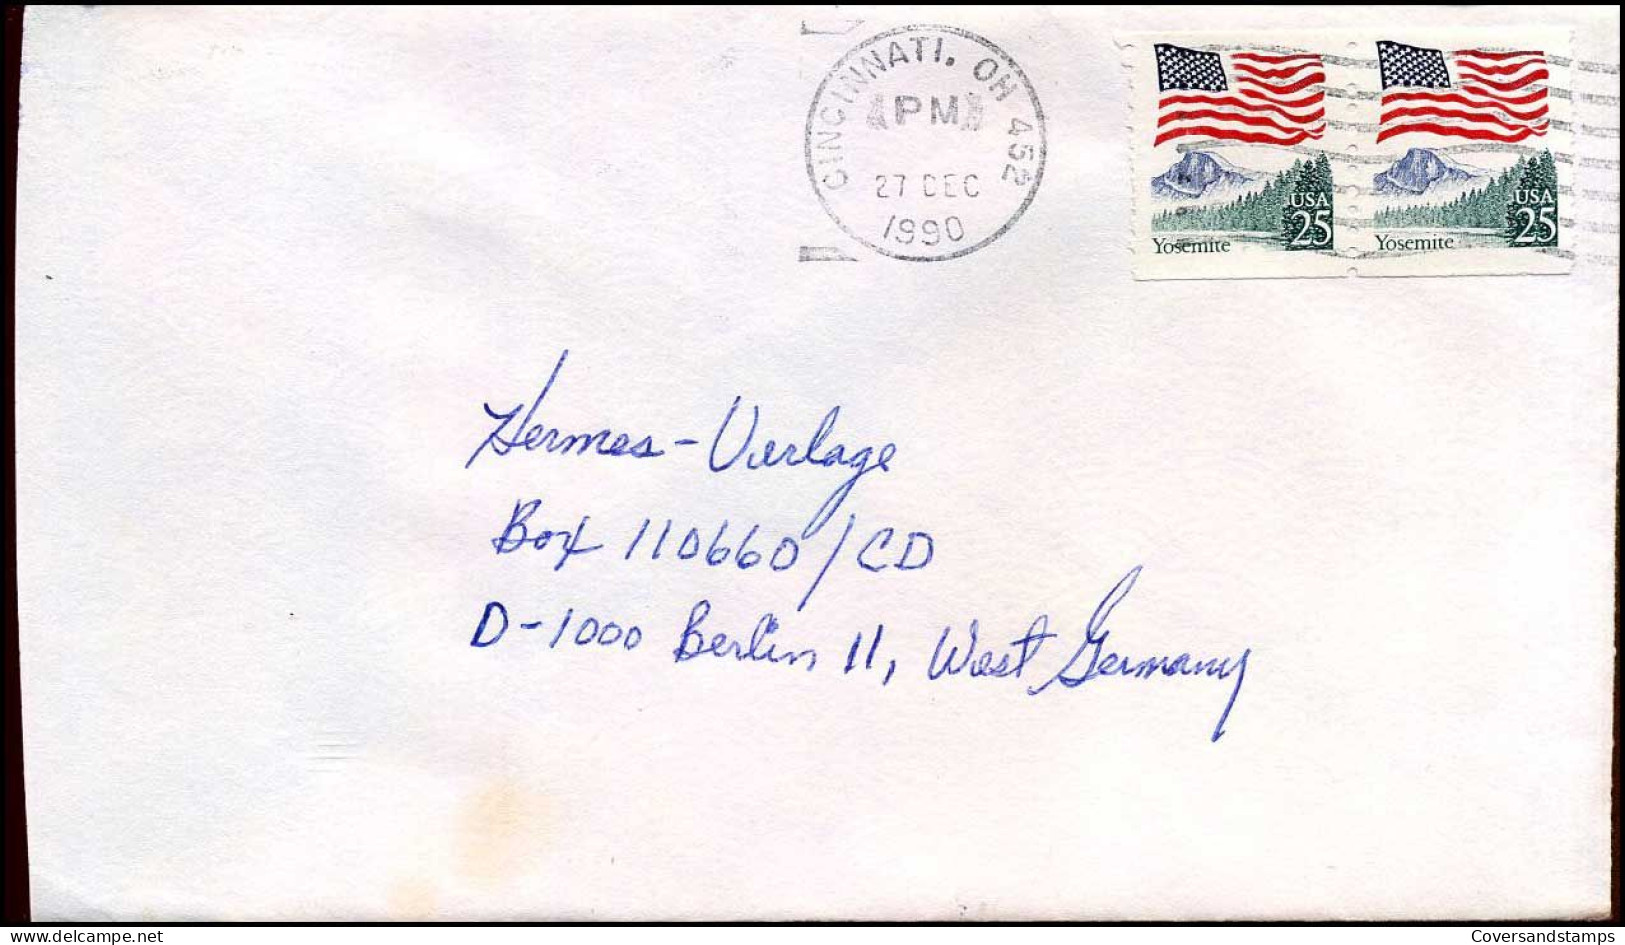 CINCINNATI. OH 452
PM
27 DEC
1990
USA
25
Yosemite
USA
25
Yosemite
Hermes-Verlage
Box 110660/CD
D-1000 Berlin 11, West Germany
delcampe.net
Coversandstamps